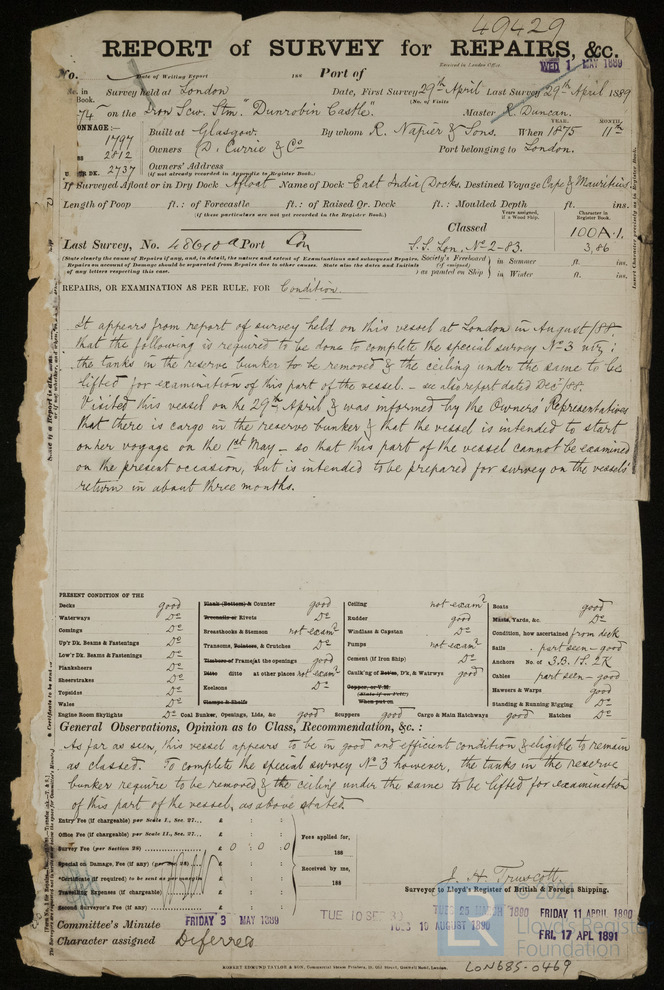 49429
REPORT of SURVEY for REPAIRS, &c.
Entered in London Office WED 1 MAY 1889
No. Date of Writing Report 188 Port of
Survey held at London Date, First Survey 29th April Last Survey 29th April 1889
Book. (No. of Visits
74 on the Iron Scw. Stm. "Dunrobin Castle". Master R. Duncan.
TONNAGE:— YEAR. MONTH.
1797 Built at Glasgow. By whom R. Napier & Sons. When 1875 11th
2812 Owners D. Currie & Co Port belonging to London.
UNDER DK. 2737 Owners' Address
(if not already recorded in Appendix to Register Book.)
If Surveyed Afloat or in Dry Dock Afloat Name of Dock East India Docks. Destined Voyage Cape & Mauritius
Length of Poop ft.: of Forecastle ft.: of Raised Qr. Deck ft.: Moulded Depth ft. ins.
(if these particulars are not yet recorded in the Register Book.)
Years assigned, if a Wood Ship. Character in Register Book.
Classed 100A.1.
Last Survey, No. 48690a Port Lon S.S. Lon. No 2-83. 3,86
(State clearly the cause of Repairs if any, and, in detail, the nature and extent of Examinations and subsequent Repairs. Society's Freeboard in Summer ft. ins.
Repairs on account of Damage should be separated from Repairs due to other causes. State also the dates and Initials (if assigned)
of any letters respecting this case. as painted on Ship in Winter ft. ins.
REPAIRS, OR EXAMINATION AS PER RULE, FOR Condition.
It appears from report of survey held on this vessel at London in August/88.
that the following is required to be done to complete the special survey No 3 viz;
the tanks in the reserve bunker to be removed & the ceiling under the same to be
lifted for examination of this part of the vessel. - see also report dated Dec/88.
Visited this vessel on the 29th April & was informed by the Owners' Representatives
that there is cargo in the reserve bunker & that the vessel is intended to start
on her voyage on the 1st May - so that this part of the vessel cannot be examined
on the present occasion, but is intended to be prepared for survey on the vessels'
return in about three months.
PRESENT CONDITION OF THE
Decks good
Waterways Do
Comings Do
Up'r Dk. Beams & Fastenings Do
Low'r Dk. Beams & Fastenings Do
Planksheers Do
Sheerstrakes Do
Topsides Do
Wales Do
Engine Room Skylights Do
Plank (Bottom) & Counter good
Treenails or Rivets Do
Breasthooks & Stemson not exam?
Transoms, Pointers, & Crutches Do
Timbers or Frames at the openings good
Ditto ditto at other places not exam?
Keelsons Do
Clamps & Shelfs
Coal Bunker, Openings, Lids, &c good
Ceiling not exam?
Rudder good
Windlass & Capstan Do
Pumps not exam?
Cement (if Iron Ship) Do
Caulk'ng of Bottom, D'k, & Watrwys good
Copper, or Y.M.
(State if on Felt)
When put on
Scuppers good Cargo & Main Hatchways good
Boats good
Masts, Yards, &c. Do
Condition, how ascertained from deck
Sails part seen - good
Anchors No. of 3.B. 1S. 2K
Cables part seen - good
Hawsers & Warps good
Standing & Running Rigging Do
Hatches Do
General Observations, Opinion as to Class, Recommendation, &c. :
As far as seen, this vessel appears to be in good and efficient condition & eligible to remain
as classed. To complete the special survey No 3 however, the tanks in the reserve
bunker require to be removed & the ceiling under the same to be lifted for examination
of this part of the vessel, as above stated
Entry Fee (if chargeable) per Scale I., Sec. 27... £ : :
Office Fee (if chargeable) per Scale II., Sec. 27... £ : : Fees applied for,
Survey Fee (per Section 29) £ 0 : 0 : 0 188
Special on Damage, Fee (if any) (per Sec. 28) £ : : Received by me,
*Certificate (if required) to be sent as per margin £ : :
Travelling Expenses (if chargeable) £ : : 188
Second Surveyor's Fee (if any) £ : :
J. H. Truscott
Surveyor to Lloyd's Register of British & Foreign Shipping.
© 2021
Committee's Minute FRIDAY 3 MAY 1889 TUES 25 MARCH 1890 FRIDAY 11 APRIL 1890
TUES 19 AUGUST 1890 FRI. 17 APL 1891
Character assigned Diferred
LR Lloyd's Register Foundation
ROBERT EDMUND TAYLOR & SON, Commercial Steam Printers, 19, Old Street, Goswell Road, London.
LON685-0469